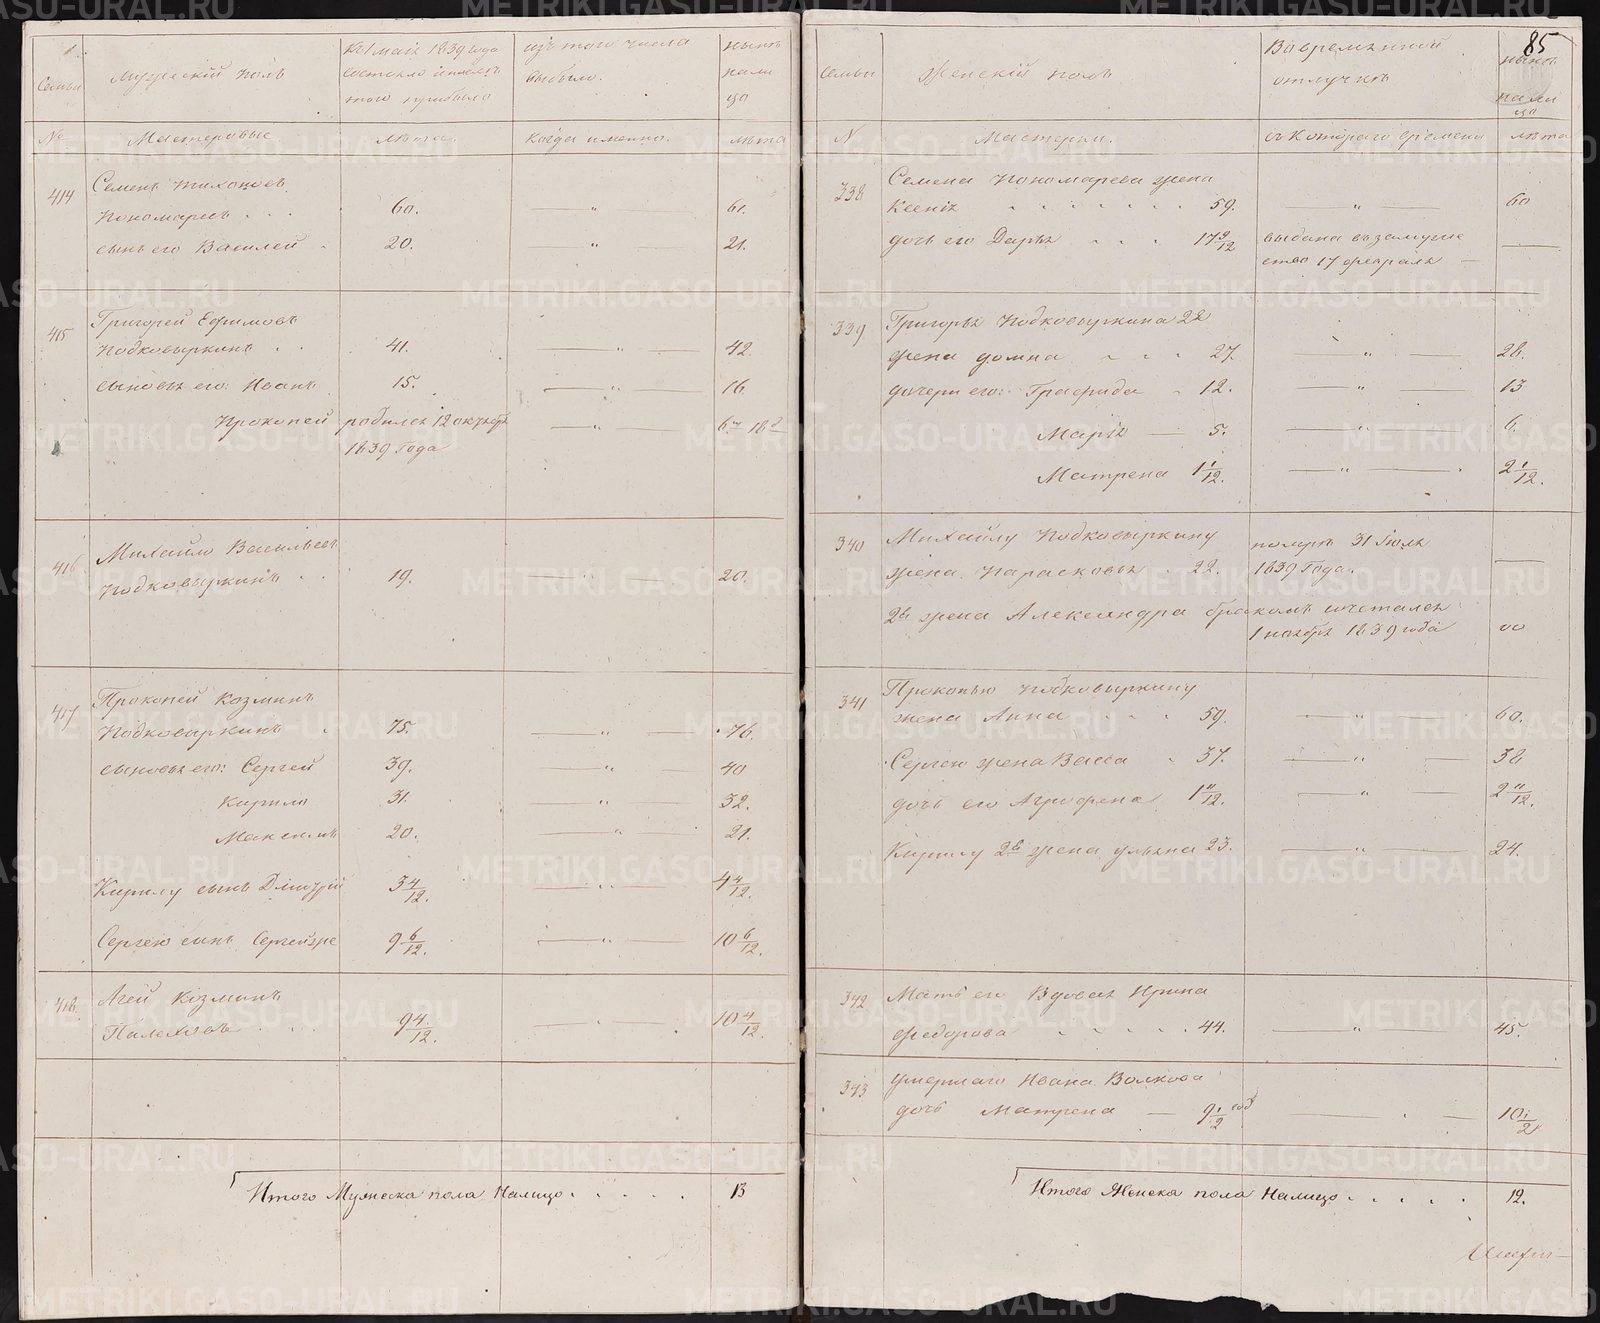 Семьи
Мужескій полъ
Къ 1 маія 1839 года
состояло и послѣ
того прибыло
изъ того числа
выбыло.
нынѣ
нали
цо
№
Мастеровые
лѣта.
когда именно.
лѣта
414
Семенъ Тихоновъ
Пономаревъ . . . 60. — " — 61.
сынъ его Василей . 20. " 21.
415
Григорей Ефимовъ
Подковыркинъ . . 41. — " — 42.
сыновья его: Иванъ 15. — " — 16.
Прокопей родился 12 октября — " — 6м 18д
1839 года
416
Михайло Васильевъ
Подковыркинъ . . 19. — — 20.
417
Прокопей Козминъ
Подковыркинъ . 75. — " — 76.
сыновья его: Сергей 39. — " — 40
Кирило 31. — " — 32.
Максимъ 20. — " — 21.
Кирилу сынъ Дмитрій 3 4/12. — " — 4 4/12.
Сергею сынъ 9 6/12. — " — 10 6/12.
418
Агей Козминъ
Палеховъ . . . 9 4/12. — — 10 4/12.
Итого Мужеска пола Налицо . . . . . 13
85
Семьи
Женскій полъ
Во временной
отлучкѣ
нынѣ
нали
цо
N
Мастерки.
съ котораго времени
лѣта
338
Семена Пономарева жена
Ксенія . . . . . . . 59. — " — 60
дочь его Дарья . . . 17 9/12 выдана въ замуже
ство 17 февраля —
339
Григорья Подковыркина 2я
жена Домна . . . 27. — " — 28.
дочери его: Графида . 12. — " — 13
Марія — 5. — " — 6.
Матрена 1 1/12. — " — 2 1/12.
340
Михайлу Подковыркину померла 31 Іюля
жена Парасковья . 22. 1839 года. —
2я жена Александра бракомъ сочетался
1 ноября 1839 года 00
341
Прокопью Подковыркину
жена Анна . . . 59. — " — 60.
Сергею жена Васса . 37. — " — 38
дочь его Агрофена 1 11/12. — " — 2 11/12.
Кирилу 2я жена Ульяна 23. — " — 24.
342
Мать его Вдова Ирина
Федорова . . . . . 44. — " — 45.
343
Умершаго Ивана Волкова
дочь Матрена — 9 1/2 год — . — 10 1/2
Итого Женска пола Налицо . . . . . 12.
METRIKI.GASO-URAL.RU